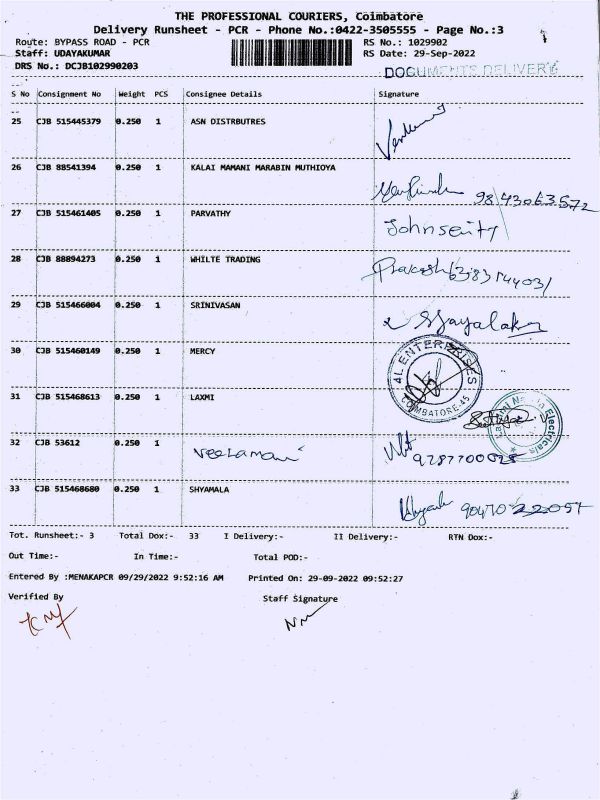 THE PROFESSIONAL COURIERS, Coimbatore
Delivery Runsheet - PCR - Phone No.:0422-3505555 - Page No.:3
Route: BYPASS ROAD - PCR RS No.: 1029902
Staff: UDAYAKUMAR RS Date: 29-Sep-2022
DRS No.: DCJB102990203 DOCUMENTS DELIVERY
S No Consignment No Weight PCS Consignee Details Signature
25 CJB 515445379 0.250 1 ASN DISTRBUTRES
26 CJB 88541394 0.250 1 KALAI MAMANI MARABIN MUTHIOYA
9843063572
27 CJB 515461405 0.250 1 PARVATHY
28 CJB 88894273 0.250 1 WHILTE TRADING
Prakash
29 CJB 515466004 0.250 1 SRINIVASAN
30 CJB 515460149 0.250 1 MERCY
4L ENTERPRISES
COIMBATORE-45
31 CJB 515468613 0.250 1 LAXMI
Electricals
32 CJB 53612 0.250 1 Veeramani
33 CJB 515468680 0.250 1 SHYAMALA
Tot. Runsheet:- 3 Total Dox:- 33 I Delivery:- II Delivery:- RTN Dox:-
Out Time:- In Time:- Total POD:-
Entered By :MENAKAPCR 09/29/2022 9:52:16 AM Printed On: 29-09-2022 09:52:27
Verified By Staff Signature